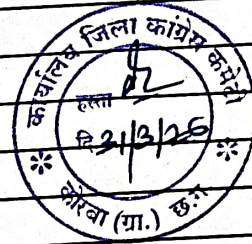 कार्यालय जिला कांग्रेस कमेटी
हस्ता
दि 31/3/26
कोरबा (ग्रा.) छ.ग